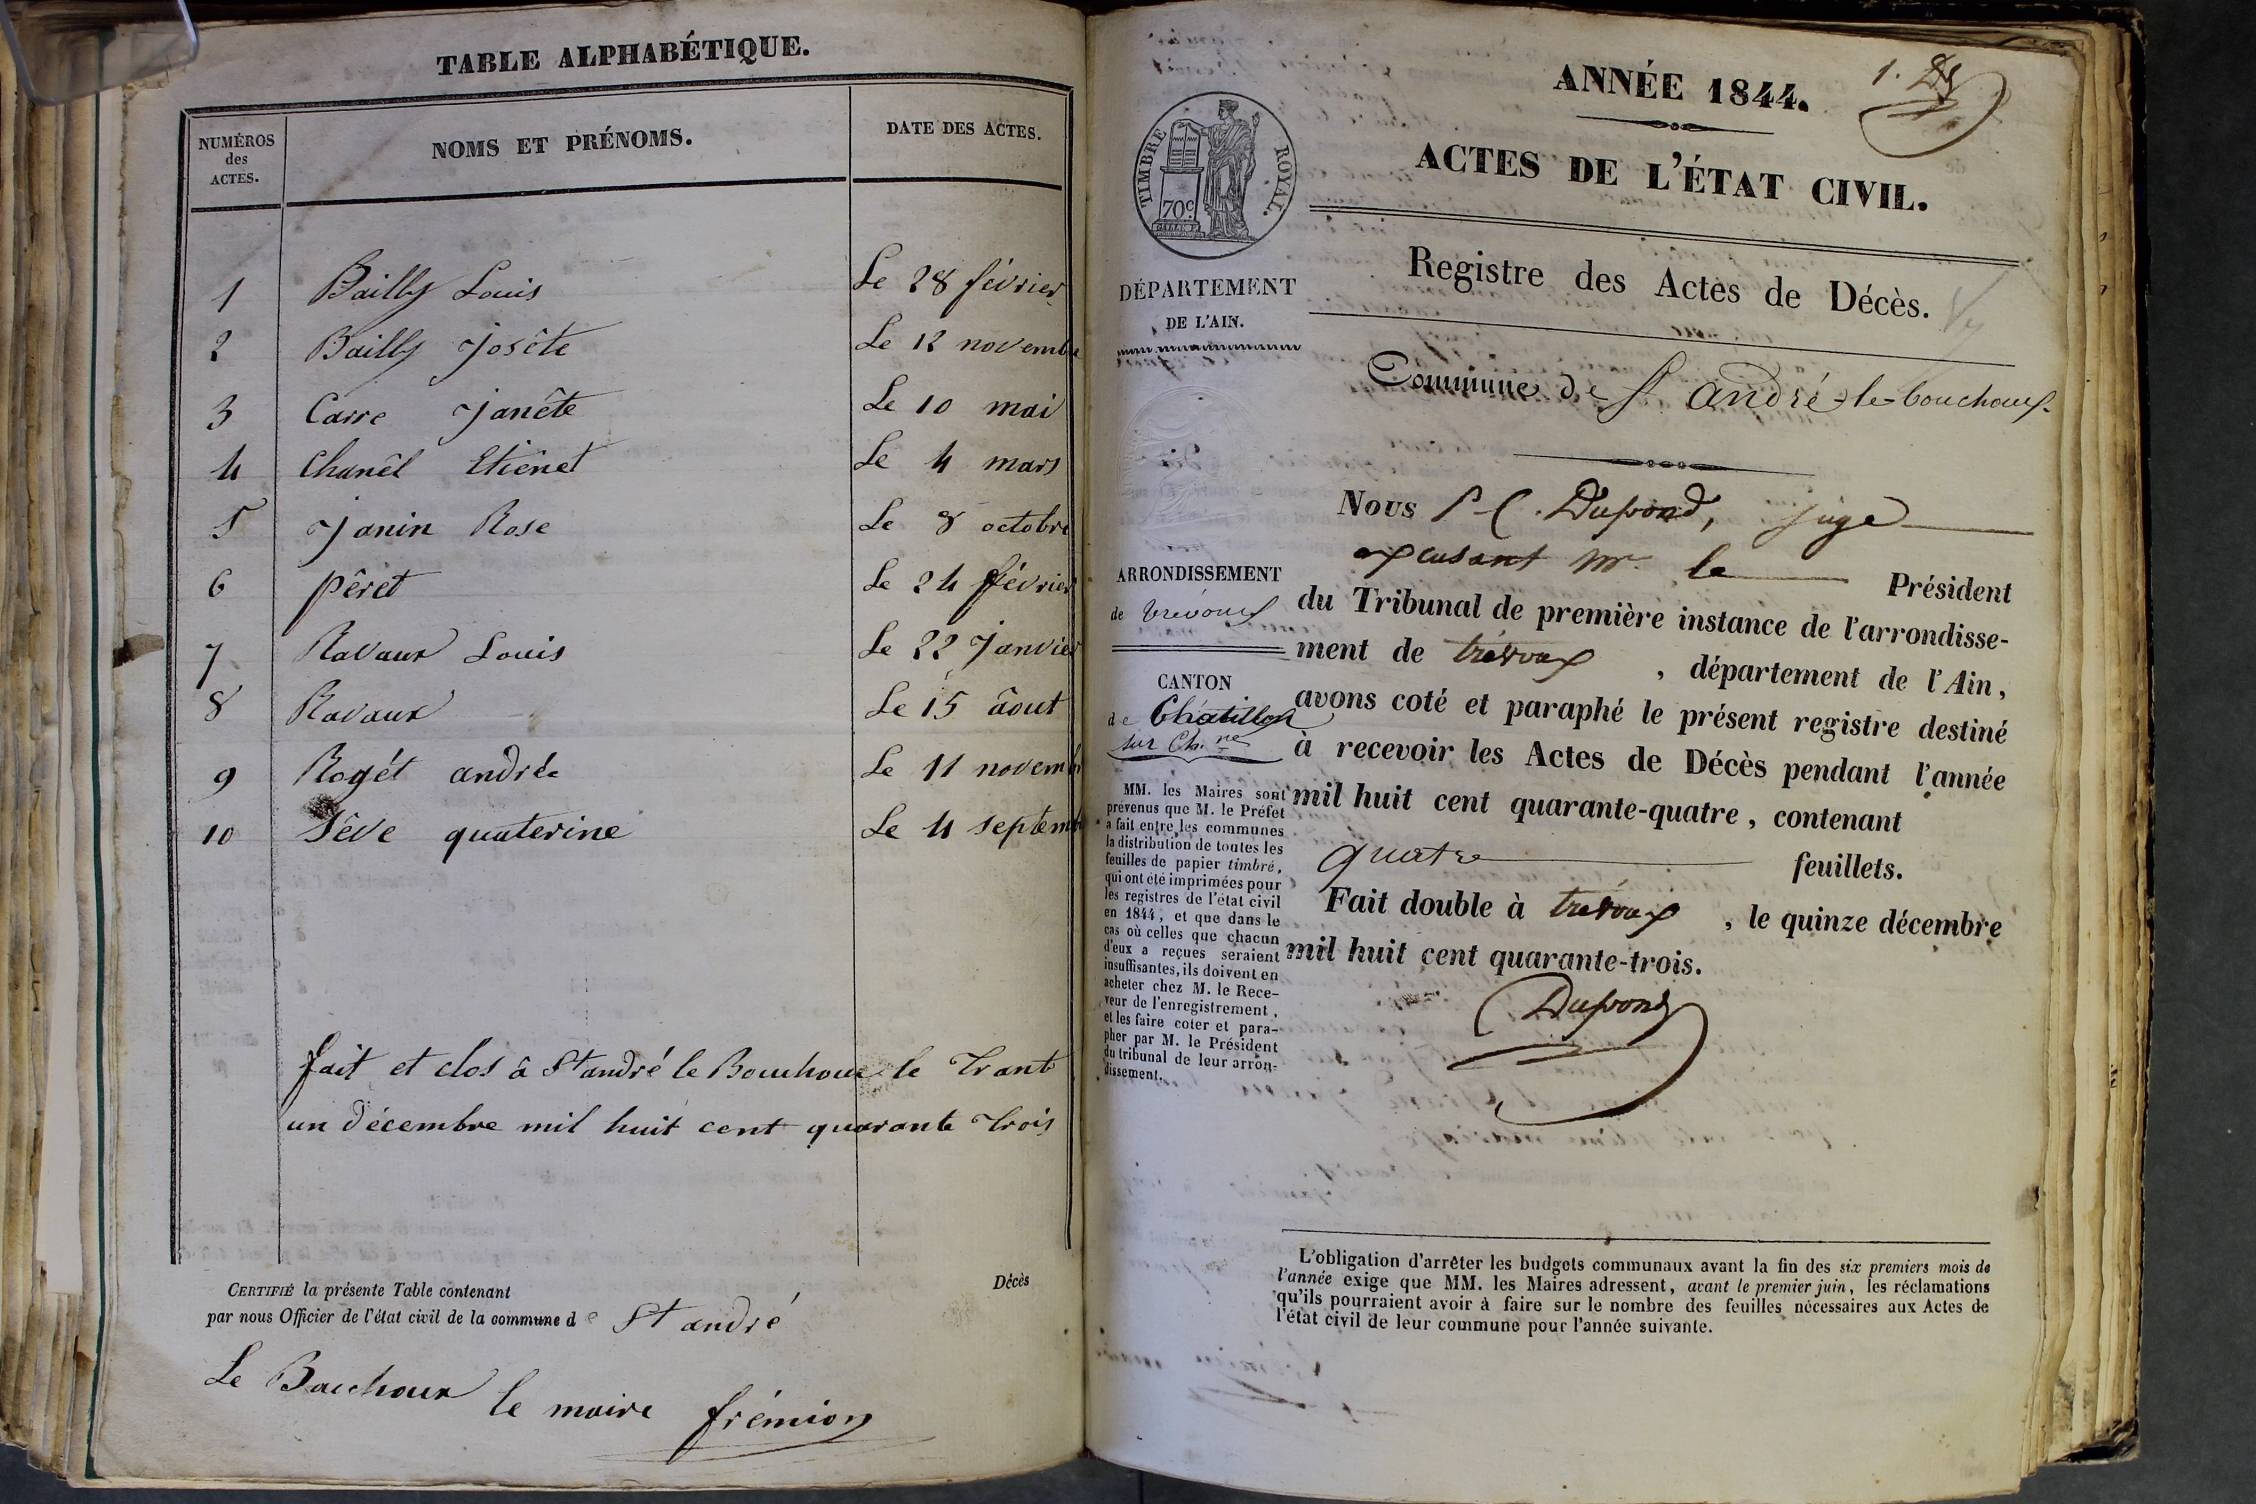 TABLE ALPHABÉTIQUE.
NUMÉROS des ACTES. NOMS ET PRÉNOMS. DATE DES ACTES.
1 Bailly Louis Le 28 février
2 Bailly Josête Le 12 novembre
3 Carre Janête Le 10 mai
4 Chanêl Etiênet Le 4 mars
5 Janin Rose Le 8 octobre
6 pêret Le 24 février
7 Ravaux Louis Le 22 Janvier
8 Ravaux Le 15 âout
9 Rogét andrée Le 11 novemb
10 Sêve quaterine Le 4 septemb
fait et clos â St andré le Bouchoux le Trant
un décembre mil huit cent quarante Trois
CERTIFIÉ la présente Table contenant Décès
par nous Officier de l'état civil de la commune de St andré
Le Bouchoux le maire frémion
1.
ANNÉE 1844.
ACTES DE L'ÉTAT CIVIL.
TIMBRE ROYAL.
70c.
DÉPARTEMENT
DE L'AIN.
Registre des Actes de Décès.
Commune de St andré-le-bouchoux.
ARRONDISSEMENT
de trévoux
CANTON
de Chatillon
sur Ch.ne
MM. les Maires sont
prévenus que M. le Préfet
a fait entre les communes
la distribution de toutes les
feuilles de papier timbré,
qui ont été imprimées pour
les registres de l'état civil
en 1844, et que dans le
cas où celles que chacun
d'eux a reçues seraient
insuffisantes, ils doivent en
acheter chez M. le Rece-
veur de l'enregistrement,
et les faire coter et para-
pher par M. le Président
du tribunal de leur arron-
dissement.
Nous P-C. Dupond, juge
excusant Mr. le Président
du Tribunal de première instance de l'arrondisse-
ment de trévoux, département de l'Ain,
avons coté et paraphé le présent registre destiné
à recevoir les Actes de Décès pendant l'année
mil huit cent quarante-quatre, contenant
quatre feuillets.
Fait double à trévoux, le quinze décembre
mil huit cent quarante-trois.
Dupond
L'obligation d'arrêter les budgets communaux avant la fin des six premiers mois de
l'année exige que MM. les Maires adressent, avant le premier juin, les réclamations
qu'ils pourraient avoir à faire sur le nombre des feuilles nécessaires aux Actes de
l'état civil de leur commune pour l'année suivante.